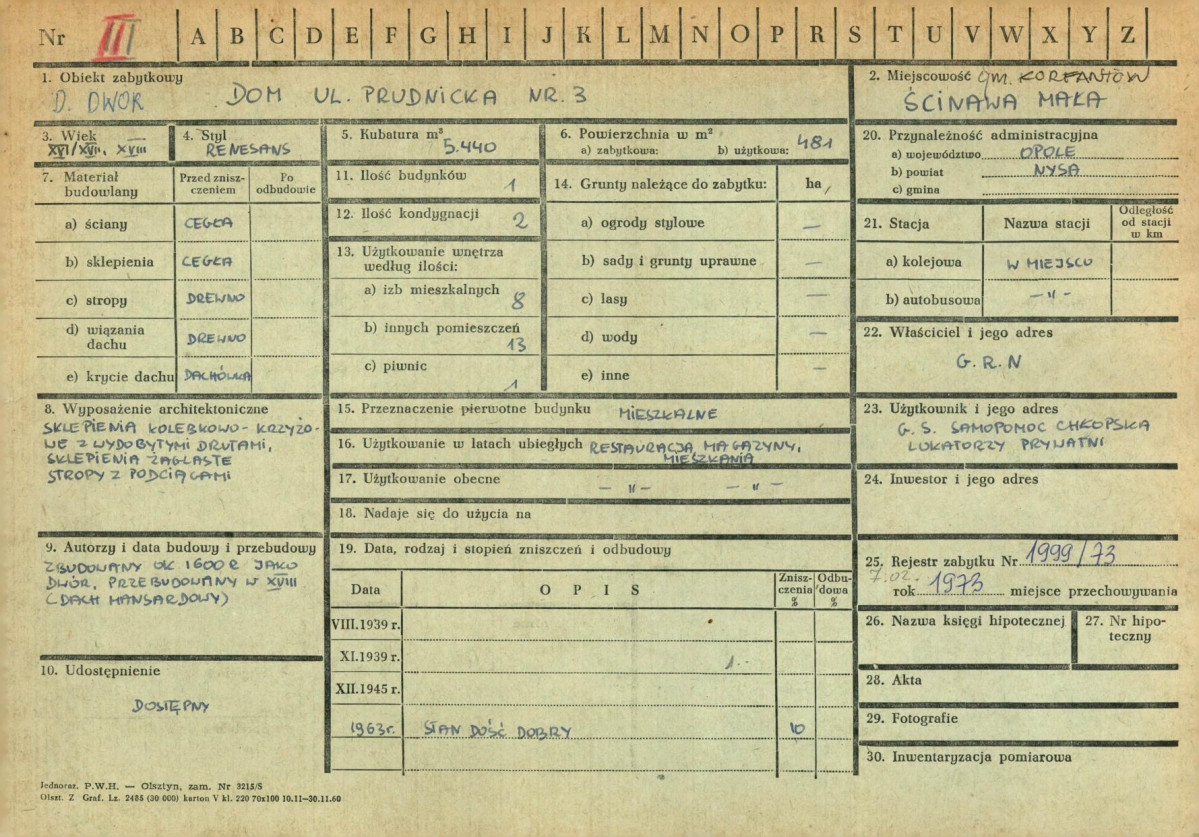 Nr III A B C D E F G H I J K L M N O P R S T U V W X Y Z
1. Obiekt zabytkowy
D. DWÓR DOM UL. PRUDNICKA NR. 3
2. Miejscowość gm. KORFANTÓW
ŚCINAWA MAŁA
3. Wiek
XVI/XVII, XVIII
4. Styl
RENESANS
5. Kubatura m³
5.440
6. Powierzchnia w m²
a) zabytkowa: b) użytkowa: 481
20. Przynależność administracyjna
a) województwo OPOLE
b) powiat NYSA
c) gmina
7. Materiał budowlany
Przed znisz-
czeniem
Po
odbudowie
a) ściany CEGŁA
b) sklepienia CEGŁA
c) stropy DREWNO
d) wiązania
dachu DREWNO
e) krycie dachu DACHÓWKA
11. Ilość budynków 1
12. Ilość kondygnacji 2
13. Użytkowanie wnętrza
według ilości:
a) izb mieszkalnych 8
b) innych pomieszczeń
13
c) piwnic
1
14. Grunty należące do zabytku: ha
a) ogrody stylowe —
b) sady i grunty uprawne —
c) lasy —
d) wody —
e) inne —
21. Stacja Nazwa stacji Odległość
od stacji
w km
a) kolejowa W MIEJSCU
b) autobusowa — „ —
22. Właściciel i jego adres
G.R.N
8. Wyposażenie architektoniczne
SKLEPIENIA KOLEBKOWO-KRZYŻO-
WE Z WYDOBYTYMI DRUTAMI,
SKLEPIENIA ŻAGLASTE
STROPY Z PODCIĄGAMI
15. Przeznaczenie pierwotne budynku MIESZKALNE
16. Użytkowanie w latach ubiegłych RESTAURACJA, MAGAZYNY,
MIESZKANIA
17. Użytkowanie obecne — „ — — „ —
18. Nadaje się do użycia na
23. Użytkownik i jego adres
G.S. SAMOPOMOC CHŁOPSKA
LUKATORZY PRYWATNI
24. Inwestor i jego adres
9. Autorzy i data budowy i przebudowy
ZBUDOWANY OK 1600 R JAKO
DWÓR, PRZEBUDOWANY W XVIII
(DACH MANSARDOWY)
10. Udostępnienie
DOSTĘPNY
19. Data, rodzaj i stopień zniszczeń i odbudowy
Data OPIS Znisz-
czenia
% Odbu-
dowa
%
VIII.1939 r.
XI.1939 r.
XII.1945 r.
1963r. STAN DOŚĆ DOBRY 10
25. Rejestr zabytku Nr 1999/73
7.02.
rok 1973 miejsce przechowywania
26. Nazwa księgi hipotecznej
27. Nr hipo-
teczny
28. Akta
29. Fotografie
30. Inwentaryzacja pomiarowa
Jednoraz. P.W.H. — Olsztyn, zam. Nr 3215/S
Olszt. Z Graf. Lz. 2485 (30 000) karton V kl. 220 70x100 10.11—30.11.60